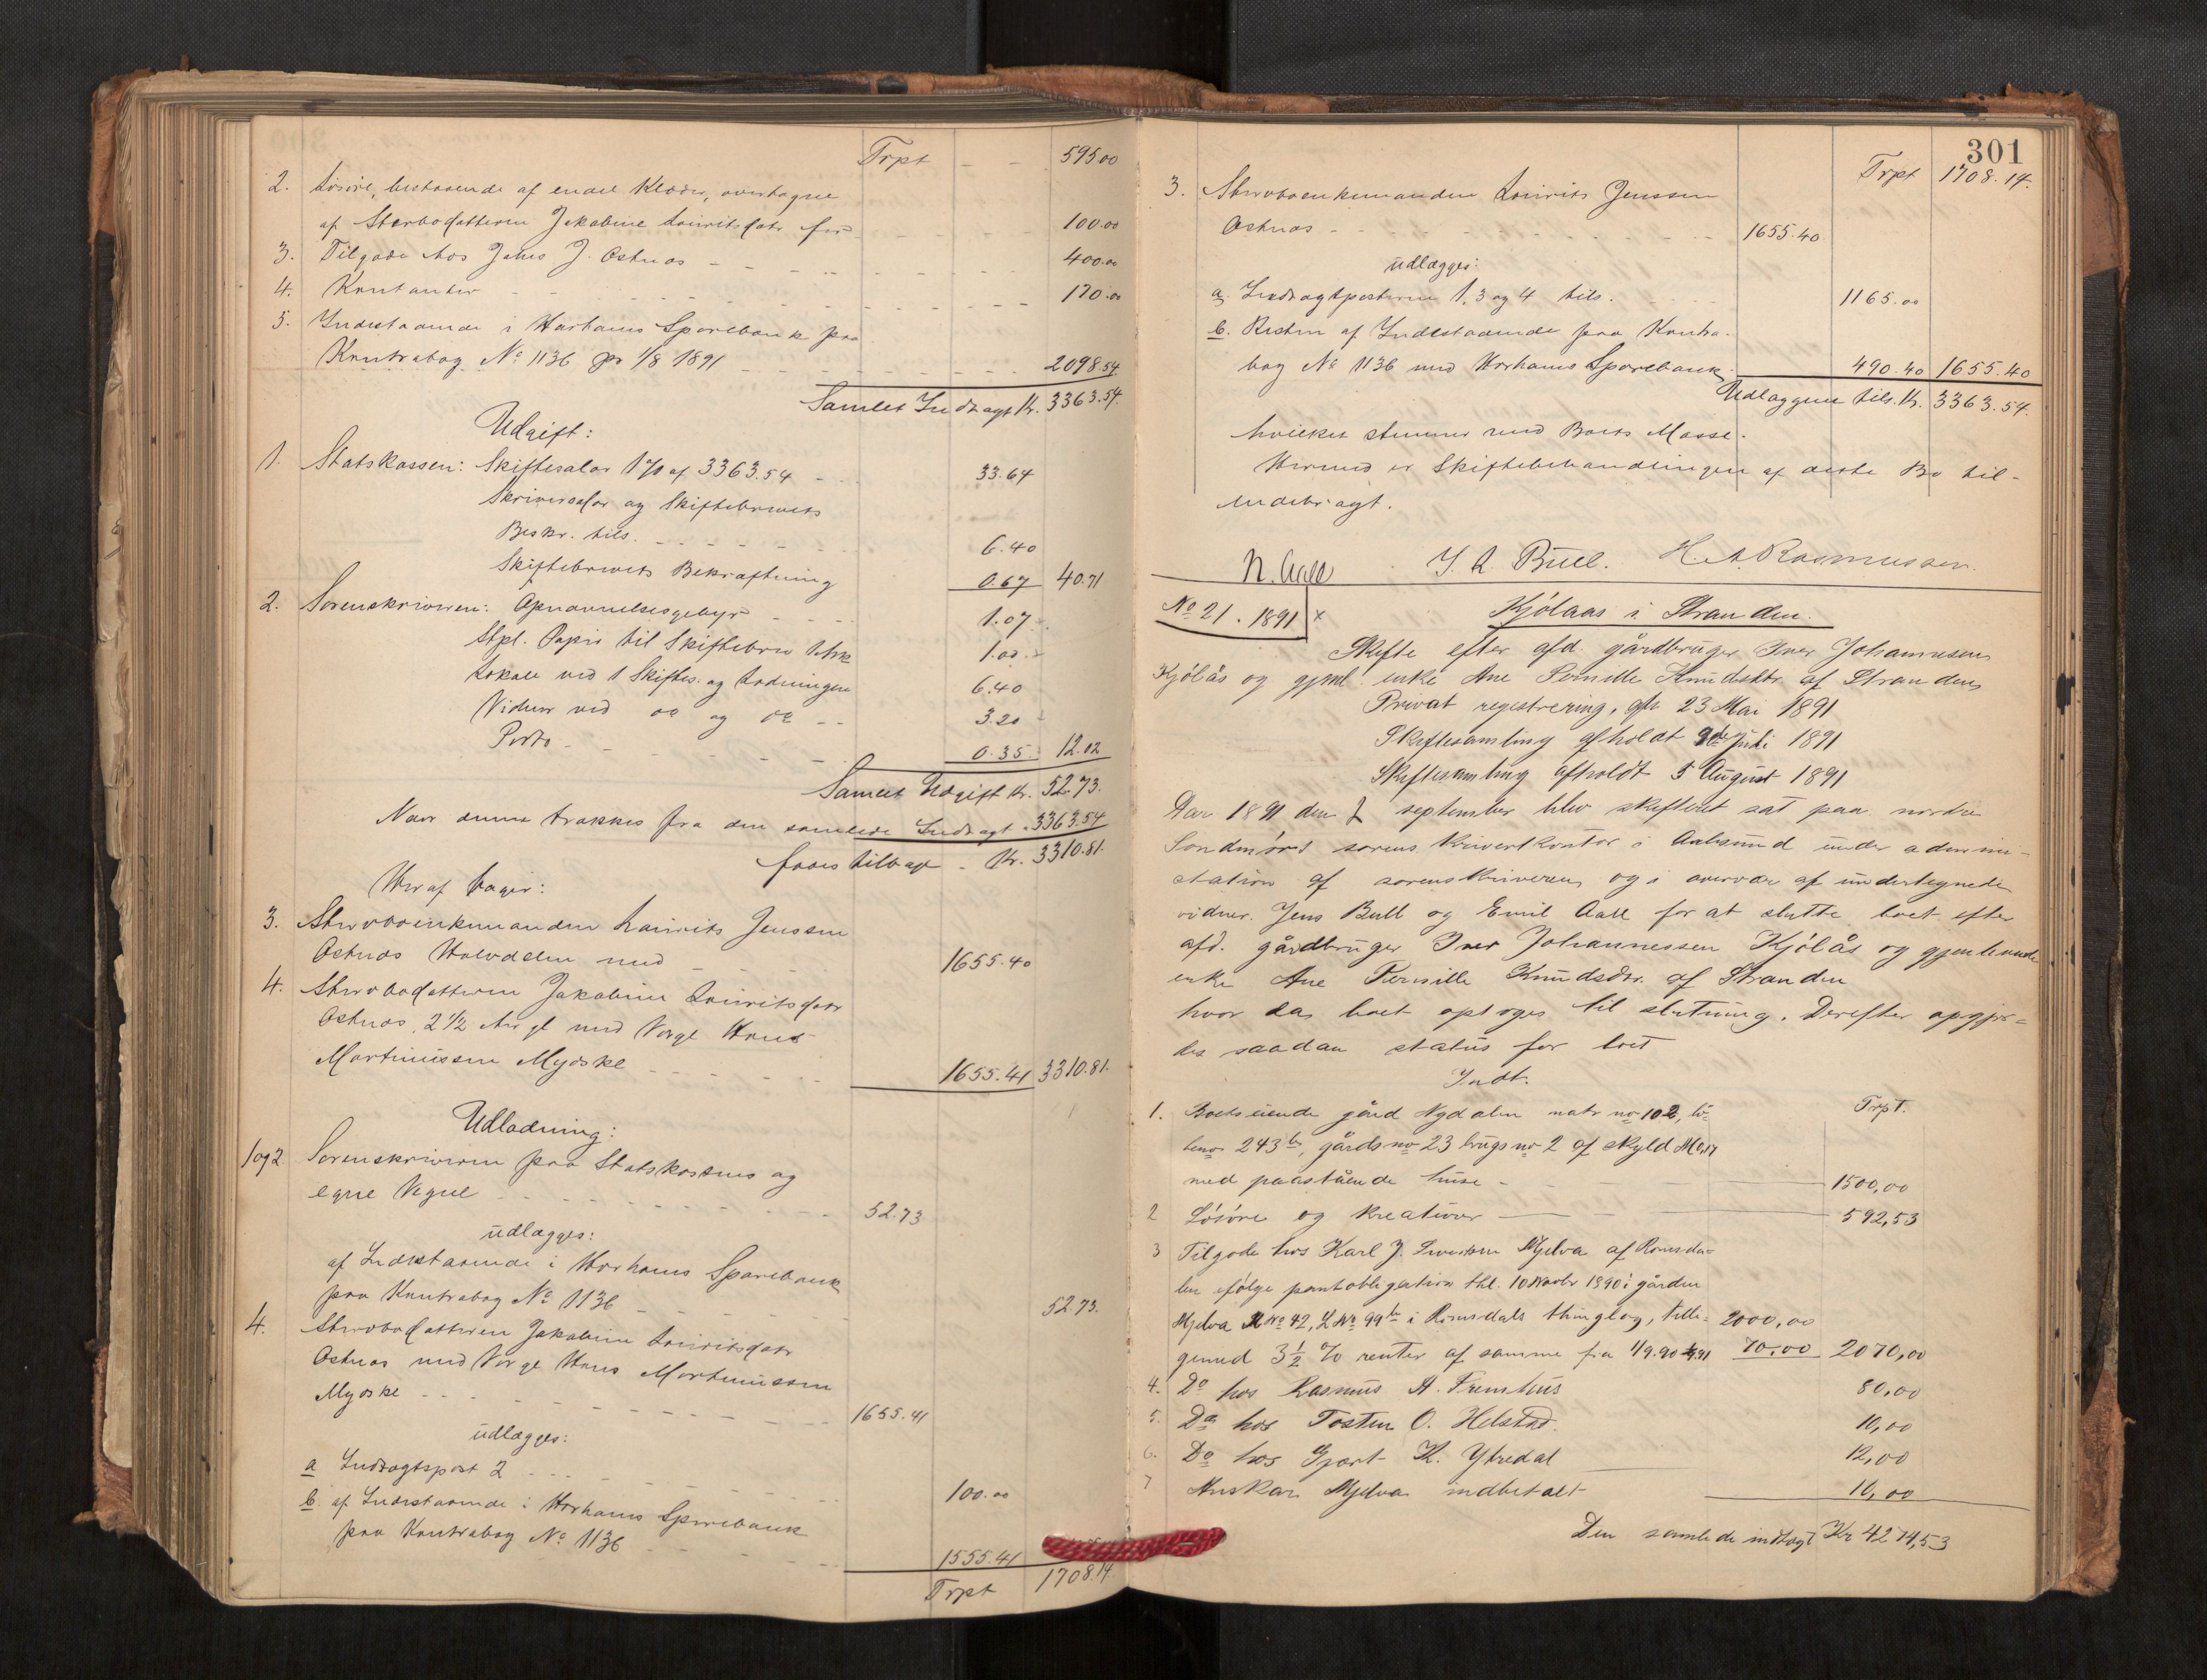 Trpt - - 595.00
2. Løsøre, bestaaende af endel Klæder, overtagne
af Sterbodatteren Jakobine Louritsdatr for - - - 100.00
3. Tilgode hos Jehs J. Østnæs - - - 400.00
4. Kontanter - - - 170.00
5. Indestaaende i Harhams Sparebank paa
Kontrabog No 1136 pr 1/8 1891 - - - 2098.54
Samlet Indtægt Kr. 3363.54
Udgift:
1. Statskassen: Skiftesalær 1 % af 3363.54 - 33.64
Skriversalær og Skiftebrevets
Beskr. tils. - - - 6.40
Skiftebrevets Bekræftning 0.67 40.71
2. Sorenskriveren: Opnævnelsesgebyr - - - 1.07
Stpl. Papir til Skiftebrev 1 Ark 1.00
Lokale ved 1 Skiftes. og Lodningen 6.40
Vidner ved do og do - - 3.20
Porto - - - 0.35 12.02
Samlet Udgift Kr. 52.73.
Naar denne trækkes fra den samlede Indtægt " 3363.54
faaes tilbage - Kr. 3310.81.
Heraf tager:
3. Sterboenkemanden Lourits Jenssen
Østnæs Halvdelen med - - 1655.40
4. Sterbodatteren Jakobine Louritsdatr
Østnæs, 2 1/2 Aar gl. med Verge Hans
Martinussen Myðske - - - 1655.41 3310.81.
Udlodning:
1 og 2 Sorenskriveren paa Statskassens og
egne Vegne - - - 52.73
udlægges:
af Indestaaende i Harhams Sparebank
paa Kontrabog No 1136 - - - 52.73.
4. Sterbodatteren Jakobine Louritsdatr
Østnæs med Verge Hans Martinussen
Myðske - - - 1655.41
udlægges:
a Indtægtspost 2 - - - 100.00
b. af Indestaaende i Harhams Sparebank
paa Kontrabog No 1136 - - - 1555.41
Trpt 1708.14
301
Trpt 1708.14.
3. Sterboenkemanden Lourits Jenssen
Østnæs - - - 1655.40
udlægges:
a. Indtægtposterne 1, 3 og 4 tils. 1165.00
b. Resten af Indestaaende paa Kontra-
bog No 1136 med Harhams Sparebank 490.40 1655.40
Udlæggene tils. Kr. 3363.54.
hvilket stemmer med Boets Masse.
Hermed er Skiftebehandlingen af dette Bo til-
endebragt.
N. Aall J. A. Bull. H. A. Rasmussen.
No 21. 1891 x
Kjölaas i Stranden.
Skifte efter afd. gårdbruger Iver Johannesen
Kjölås og gjenl. enke Ane Pernille Knudsdtr. af Stranden
Privat registrering, afh 23 Mai 1891
Skiftesamling afholdt 9de Juli 1891
Skiftesamling afholdt 5 August 1891
Aar 1891 den 7 september blev skifteret sat paa nordre
Söndmörs sorenskriverkontor i Aalesund under admini-
stration af sorenskriveren og i overvær af undertegnede
vidner Jens Bull og Emil Aall for at slutte boet efter
afd. gårdbruger Iver Johannessen Kjölås og gjenlevende
enke Ane Pernille Knudsdtr. af Stranden
hvor da boet optoges til slutning. Derefter opgjor=
des saadan status for boet
Indt.
1. Boets eiende gård Nydalen matr no 102, lö- Trpt.
beno 243b, gårdsno 23 brugsno 2 af skyld M 0,17
med paastående huse - - - 1500,00
2 Lösöre og kreaturer - - - 592,53
3 Tilgode hos Karl J. Iversen Mjelva af Romsda-
len ifølge pantobligation thl. 10 Novbr 1890 i gården
Mjelva MNo 42, LNo 99b i Romsdals thinglag, tilli- 2000,00
gemed 3 1/2 % renter af samme fra 1/9.90 - 1/9.91 70,00 2070,00
4. Do hos Rasmus A. Fremhus 80,00
5. Do hos Tosten O. Helstad. 10,00
6. Do hos Gjært K. Ytredal 12,00
7 Anskar Mjelva indbetalt 10,00
Den samlede indtægt Kr 4274,53